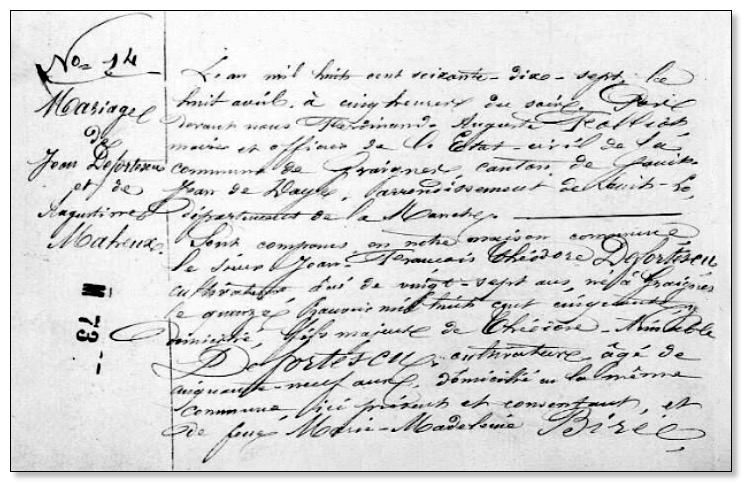 No= 14
Mariage
de
Jean Defortescu
et de
Augustine
Matreux.
L'an mil huit cent soixante-dix-sept, le
huit avril, à cinq heures du soir, Par
devant nous Ferdinand Auguste
maire et officier de l'État-civil de la
commune de Graignes, canton de Saint-
Jean de Daye, arrondissement de Saint-Lo,
département de la Manche,
Sont comparus en notre maison commune
le sieur Jean-Francois Théodore Defortescu
cultivateur âgé de vingt-sept ans, né à Graignes
le quinze Janvier mil huit cent cinquante, y
domicilié, fils majeur de Théodore-Aimable
Defortescu, cultivateur, âgé de
cinquante-neuf ans, domicilié en la même
commune, ici présent et consentant, et
de feue Marie-Madeleine Birée,
M 73